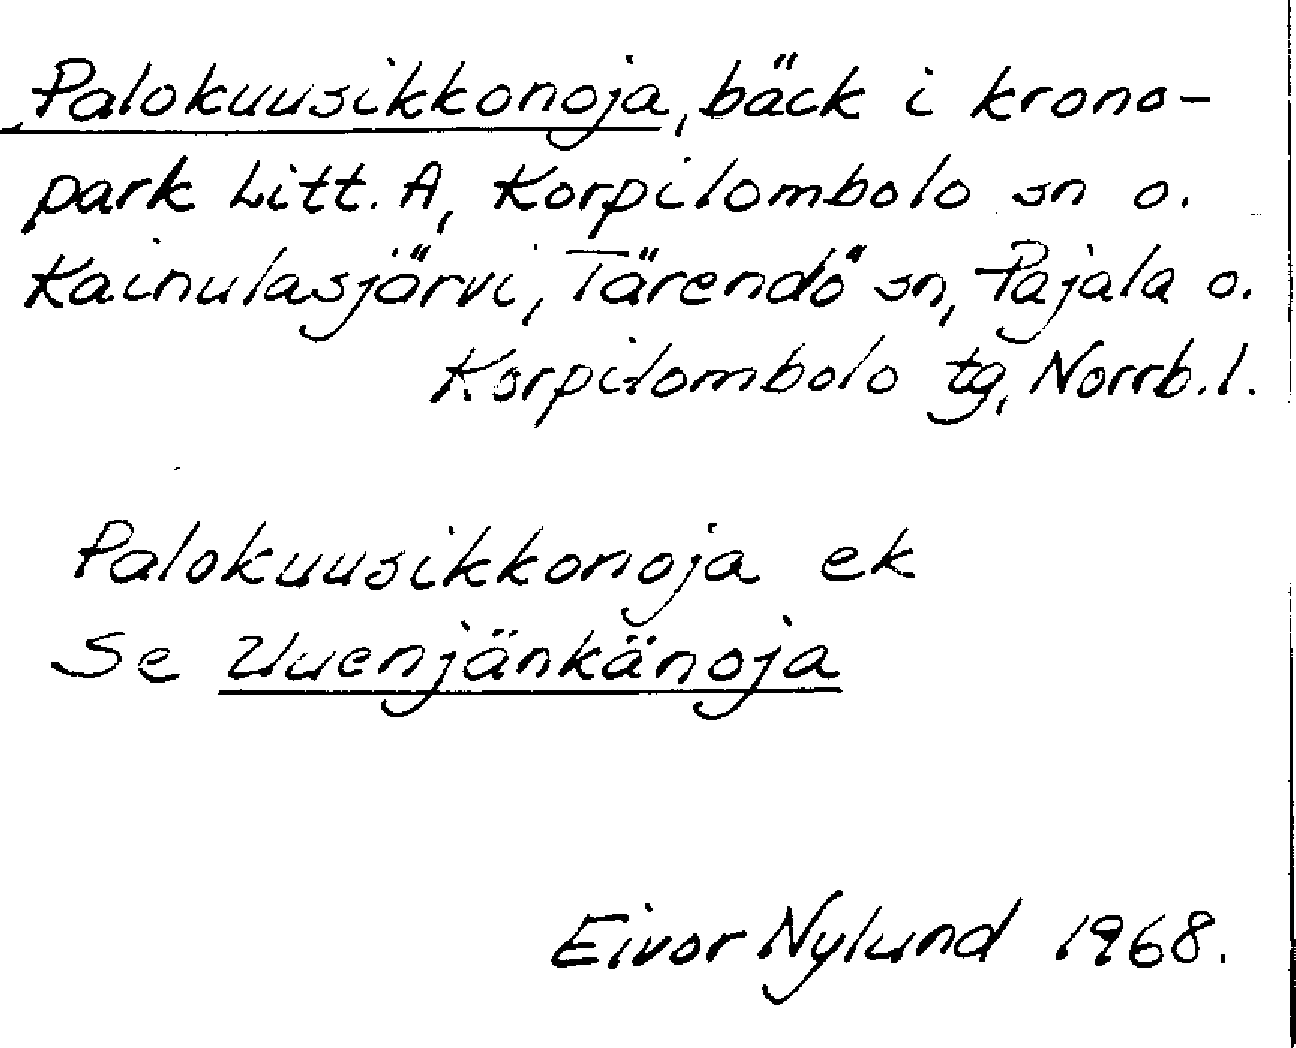 Palokuusikkonoja, bäck i krono-
park Litt. A, Korpilombolo sn o.
Kainulasjärvi, Tärendö sn, Pajala o.
Korpilombolo tg, Norrb. l.
Palokuusikkonoja ek
Se Uuenjänkänoja
Eivor Nylund 1968.